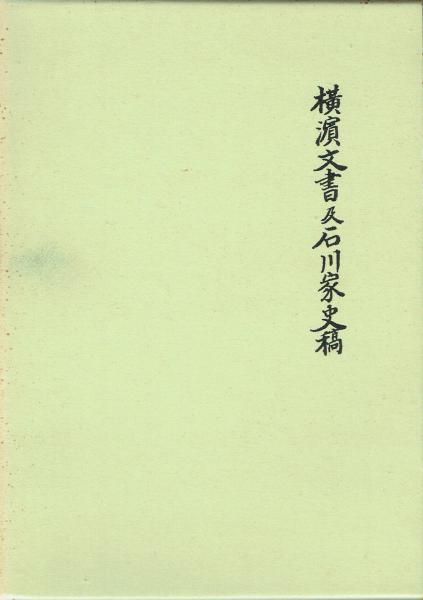 橫濱文書及石川家史稿